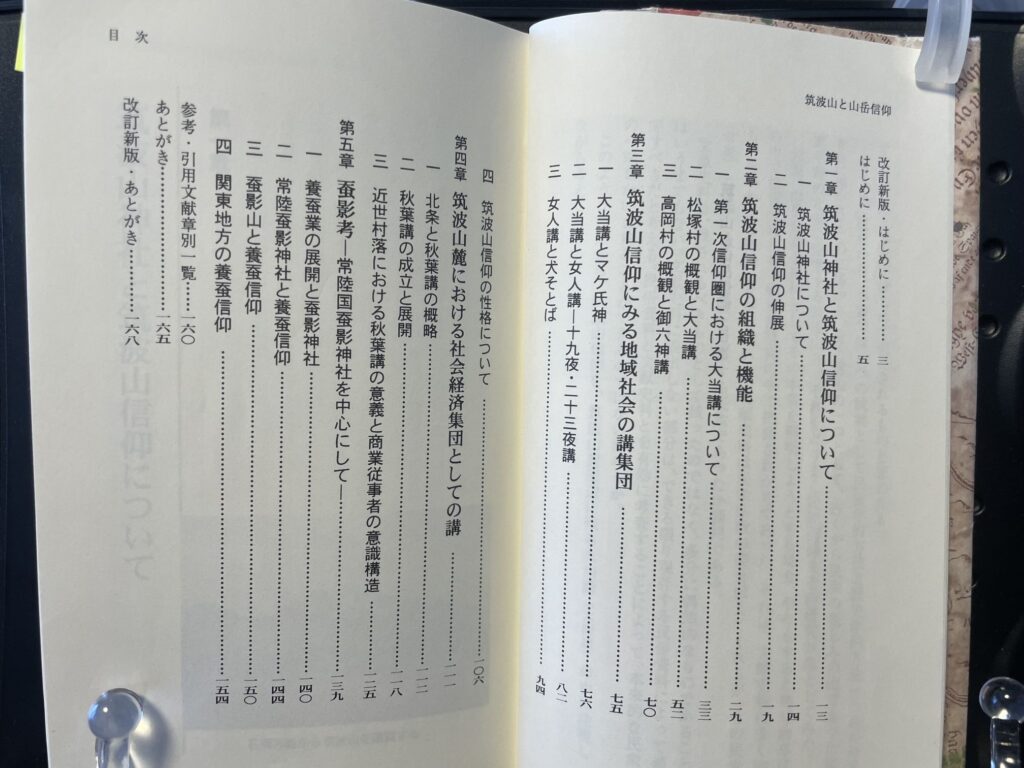 筑波山と山岳信仰
改訂新版・はじめに………… 三
はじめに………… 五
第一章 筑波山神社と筑波山信仰について………… 一三
一 筑波山神社について………… 一四
二 筑波山信仰の伸展………… 一九
第二章 筑波山信仰の組織と機能………… 二九
一 第一次信仰圏における大当講について………… 三三
二 松塚村の概観と大当講………… 五二
三 高岡村の概観と御六神講………… 七〇
第三章 筑波山信仰にみる地域社会の講集団………… 七五
一 大当講とマケ氏神………… 七六
二 大当講と女人講―十九夜・二十三夜講………… 八二
三 女人講と犬そとば………… 九四
目 次
四 筑波山信仰の性格について………… 一〇六
第四章 筑波山麓における社会経済集団としての講………… 一一一
一 北条と秋葉講の概略………… 一一二
二 秋葉講の成立と展開………… 一一八
三 近世村落における秋葉講の意義と商業従事者の意識構造………… 一二五
第五章 蚕影考―常陸国蚕影神社を中心にして―………… 一三九
一 養蚕業の展開と蚕影神社………… 一四〇
二 常陸蚕影神社と養蚕信仰………… 一四四
三 蚕影山と養蚕信仰………… 一五〇
四 関東地方の養蚕信仰………… 一五四
参考・引用文献章別一覧………… 一六〇
あとがき………… 一六五
改訂新版・あとがき………… 一六八